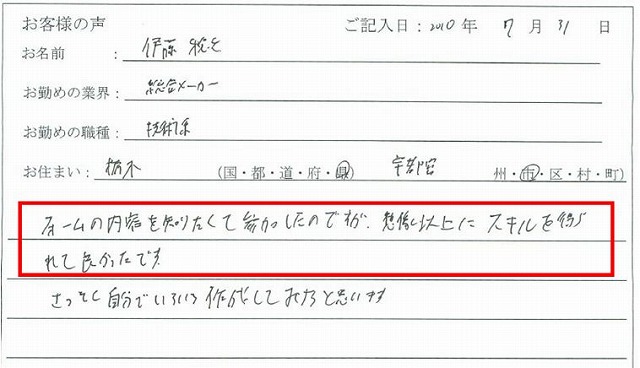 お客様の声 ご記入日：2010年 7月 31日
お名前 ： 伊藤
お勤めの業界： 総合メーカー
お勤めの職種： 技術系
お住まい： 栃木 (国・都・道・府・県) 宇都宮 州・市・区・村・町)
フォームの内容を知りたくて参加したのですが、想像以上にスキルを得ら
れて良かったです。
さっそく自分でいろいろ作成してみたいと思います